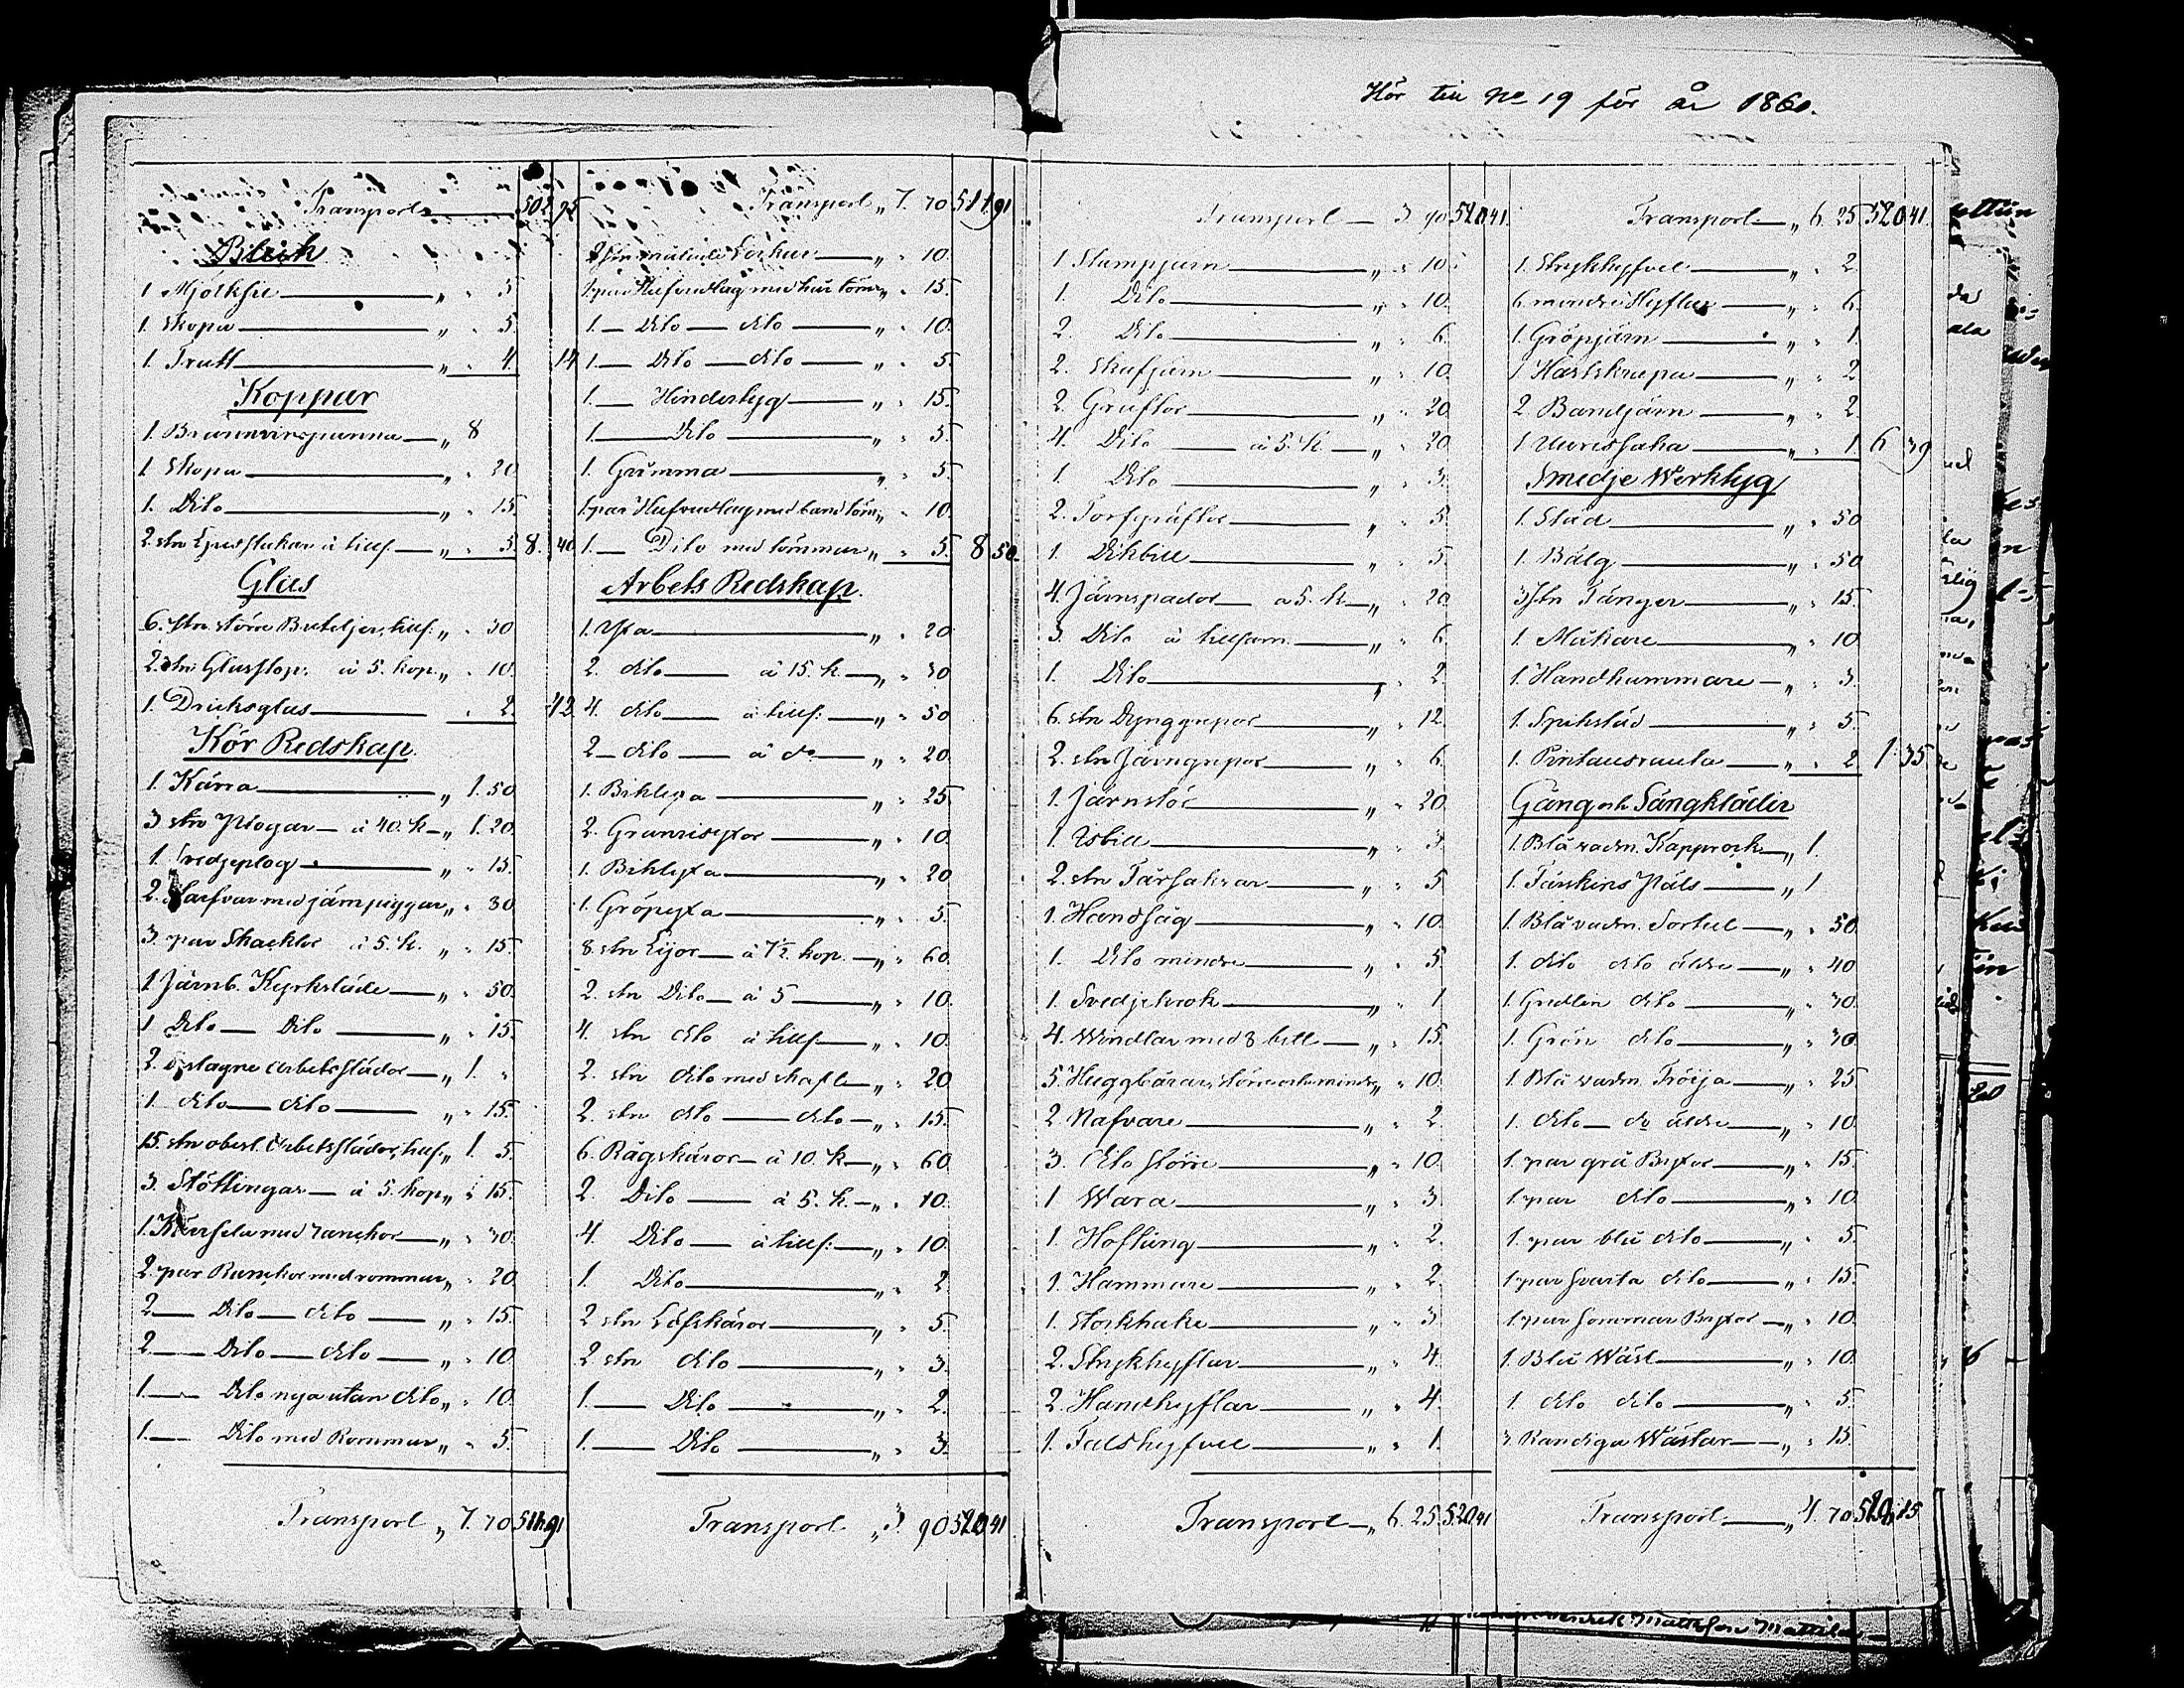 Transport 502 95
Bleck
1 Mjölksil „ „ 5
1. Skopa „ „ 5.
1. Tratt „ „ 4. 14
Koppar
1. Brännvinspanna „ 8
1 Skopa „ 20
1. Dito „ 15
2. stn Ljusstakar à tills. „ „ 5. 8. 40
Glas
6. stn större Buteljer, tills: „ „ 30
2. stn Glasstop. à 5. kop. „ „ 10.
1. Dricksglas „ 2. 42
Kör Redskap.
1. Kärra „ 1. 50
3 stn Plogar à 40. K „ 1. 20.
1. Svedjeplog „ „ 15.
2. Harfvar med järnpiggar „ „ 30
3. par Skacklor à 5. k. „ „ 15.
1 Järnb. Kyrksläde „ „ 50.
1 Dito Dito „ „ 15.
2. beslagne Arbetsslädor „ 1. „
1. dito dito „ „ 15.
15. stn obesl. Arbetsslädor, tills: „ 1. 5.
3. Stöttingar à 5. kop „ „ 15.
1. Kärrsela med rankor „ „ 30.
2. par Rankor med rommar „ „ 20
2 Dito dito „ „ 15.
2. Dito dito „ „ 10
1. Dito nya utan dito „ „ 10.
1. Dito med Rommar „ „ 5.
Transport „ 7. 70 511 91
Transport „ 7. 70 511 91
2 stn målade „ „ 10.
1. par Hufvudlag med „ „ 15.
1. Dito dito „ „ 10.
1. Dito dito „ „ 5.
1. Hindertyg „ „ 15.
1. Dito „ „ 5.
1. Grimma „ „ 5.
1. par Hufvudlag med band töm „ „ 10.
1. Dito med tömmar „ „ 5. 8 50.
Arbets Redskap.
1. Yxa „ „ 20
2. dito à 15. k. „ „ 30
4. dito à tills: „ „ 50
2 dito à do „ „ 20.
1. Bihlyxa „ „ 25
2. Granrisyxor „ „ 10.
1. Bihlyxa „ „ 20
1. Gröpyxa „ „ 5.
8. stn Lijor à 7½. kop. „ „ 60.
2. stn Dito à 5 „ „ 10.
4. stn dito à tills „ „ 10.
2. stn dito med skaft „ „ 20
2. stn dito dito „ „ 15.
6. Rågskäror à 10. K „ „ 60.
2. Dito à 5. k. „ „ 10.
4. Dito à tills: „ „ 10.
1. Dito „ „ 2.
2 stn Löfskäror „ „ 5.
2. stn dito „ „ 3.
1. Dito „ „ 2.
1. Dito „ „ 3.
Transport „ 3. 90 520 41
Hör till No 19 för år 1860.
Transport 3 90 520 41.
1. Stampjärn „ „ 10.
1. Dito „ „ 10.
2. Dito „ „ 6.
2. Skafjärn „ „ 10.
2. Graftor „ „ 20
4. Dito à 5. k. „ 20
1. Dito „ „ 3.
2. Torfgräftor „ „ 5
1. Dikbill „ „ 5.
4. Järnspador à 5. k „ „ 20.
3. Dito à tillsam. „ „ 6.
1. Dito „ „ 2.
6. stn Dynggrepor „ „ 12.
2. stn Järngrepor „ „ 6
1. Järnstör „ „ 20.
1. Isbill „ „ 3
2. stn Tärsaxar „ „ 5
1. Handsåg „ „ 10.
1. Dito mindre „ „ 5.
1. Svedjekrok „ „ 1
4. Windlar med 8 bett „ „ 15.
5. Huggbårar, större och mindre „ „ 10.
2 Nafvare „ „ 2.
3. Dito större „ „ 10.
1 Wara „ „ 3
1. Hoftång „ „ 2.
1. Hammare „ „ 2.
1. Storkhake „ „ 3
2. Strykhyflar „ „ 4.
2. Handhyflar „ „ 4.
1. Falshyfvel „ „ 1.
Transport „ 6. 25. 520 41
Transport „ 6. 25 520 41.
1. Strykhyfvel „ „ 2
6. mindre Hyflar „ „ 6.
1. Gröpjärn „ „ 1
1 Hartskrapa „ „ 2
2. Bandjärn „ „ 2.
1 „ „ 1 6 39
Smedje Werktyg
1. Städ „ „ 50
1. Bälg „ „ 50
3 stn Tänger „ „ 15.
1. Mäkare „ „ 10
1. Handhammare „ „ 3.
1. Spikstäd „ „ 5.
1. Pintausrauta „ „ 2 1. 35
Gång och Sängkläder
1. Blå vadm. Kapprock „ 1.
1. Fårskins Päls „ 1.
1. Blå vadm. Sortut „ „ 50
1. dito dito äldre „ „ 40
1. Gredlen dito „ „ 30.
1. Grön dito „ „ 30
1. Blå vadm. Tröija „ „ 25
1. dito do äldre „ „ 10.
1. par grå Byxor „ „ 15.
1. par dito „ „ 10
1. par blå dito „ „ 5.
1. par svarta dito „ „ 15.
1. par sommar Byxor „ „ 10.
1. Blå Wäst „ „ 10.
1. dito dito „ „ 5.
3. Randiga Wästar „ „ 15.
Transport „ 4. 70 528 15